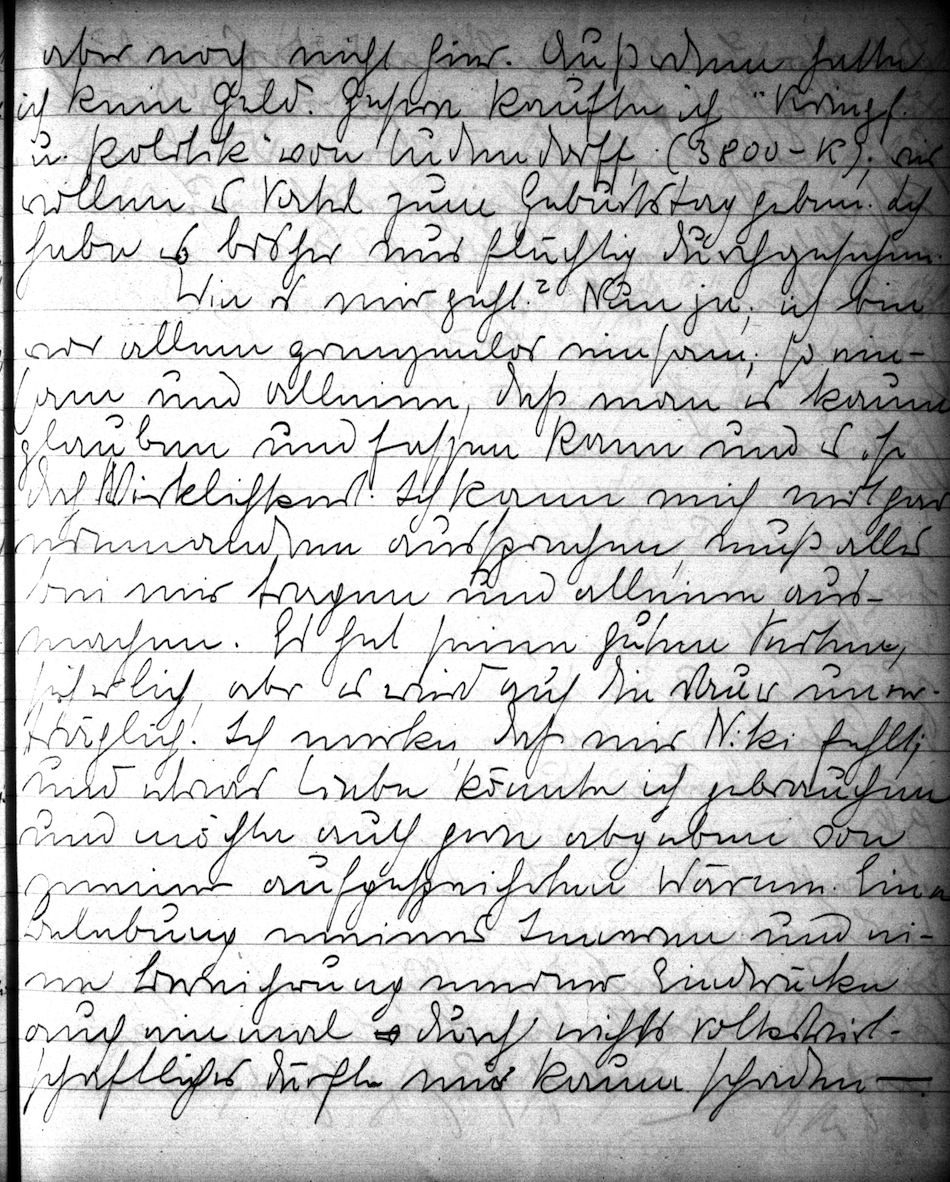 aber noch nicht hier. Außerdem hatte
ich kein Geld. Gestern kaufte ich "Kriegf.
u. Politik" von Ludendorff, (3800-K); wir
wollen es Vatel zum Geburtstag geben. Ich
habe es bisher nur flüchtig durchgesehen.
Wie es mir geht? Nun ja, ich bin
vor allem grenzenlos einsam, so ein-
sam und allein, daß man es kaum
glauben und fassen kann und es ist
doch Wirklichkeit. Ich kann mich mit gar
niemandem aussprechen, muß alles
bei mir tragen und allein aus-
machen. Es hat seinen guten Vorteil,
sicherlich, aber es wird auf die Dauer uner-
träglich. Ich merke, daß mir Niki fehlt;
und etwas Liebe könnte ich gebrauchen
und möchte auch gern abgeben von
meiner aufgespeicherten Wärme. Eine
Belebung meines Inneren und ei-
ne Bereicherung meiner Eindrücke
auch einmal durch nichts Volkswirt-
schaftliches dürfte mir kaum schaden —